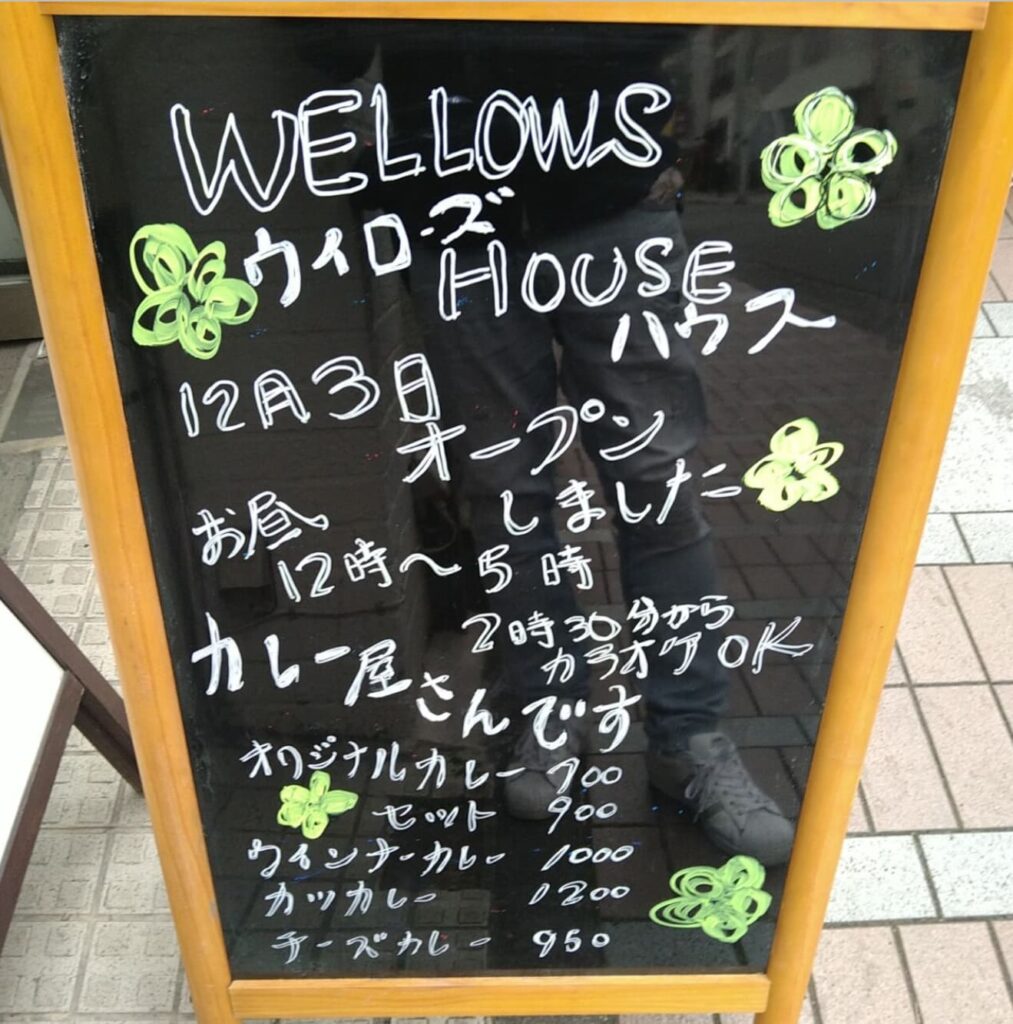 WELLOWS
ウィローズ
HOUSE
ハウス
12月3日
オープン
しました
お昼
12時～5時
2時30分から
カラオケOK
カレー屋さんです
オリジナルカレー 700
セット 900
ウインナーカレー 1000
カツカレー 1200
チーズカレー 950